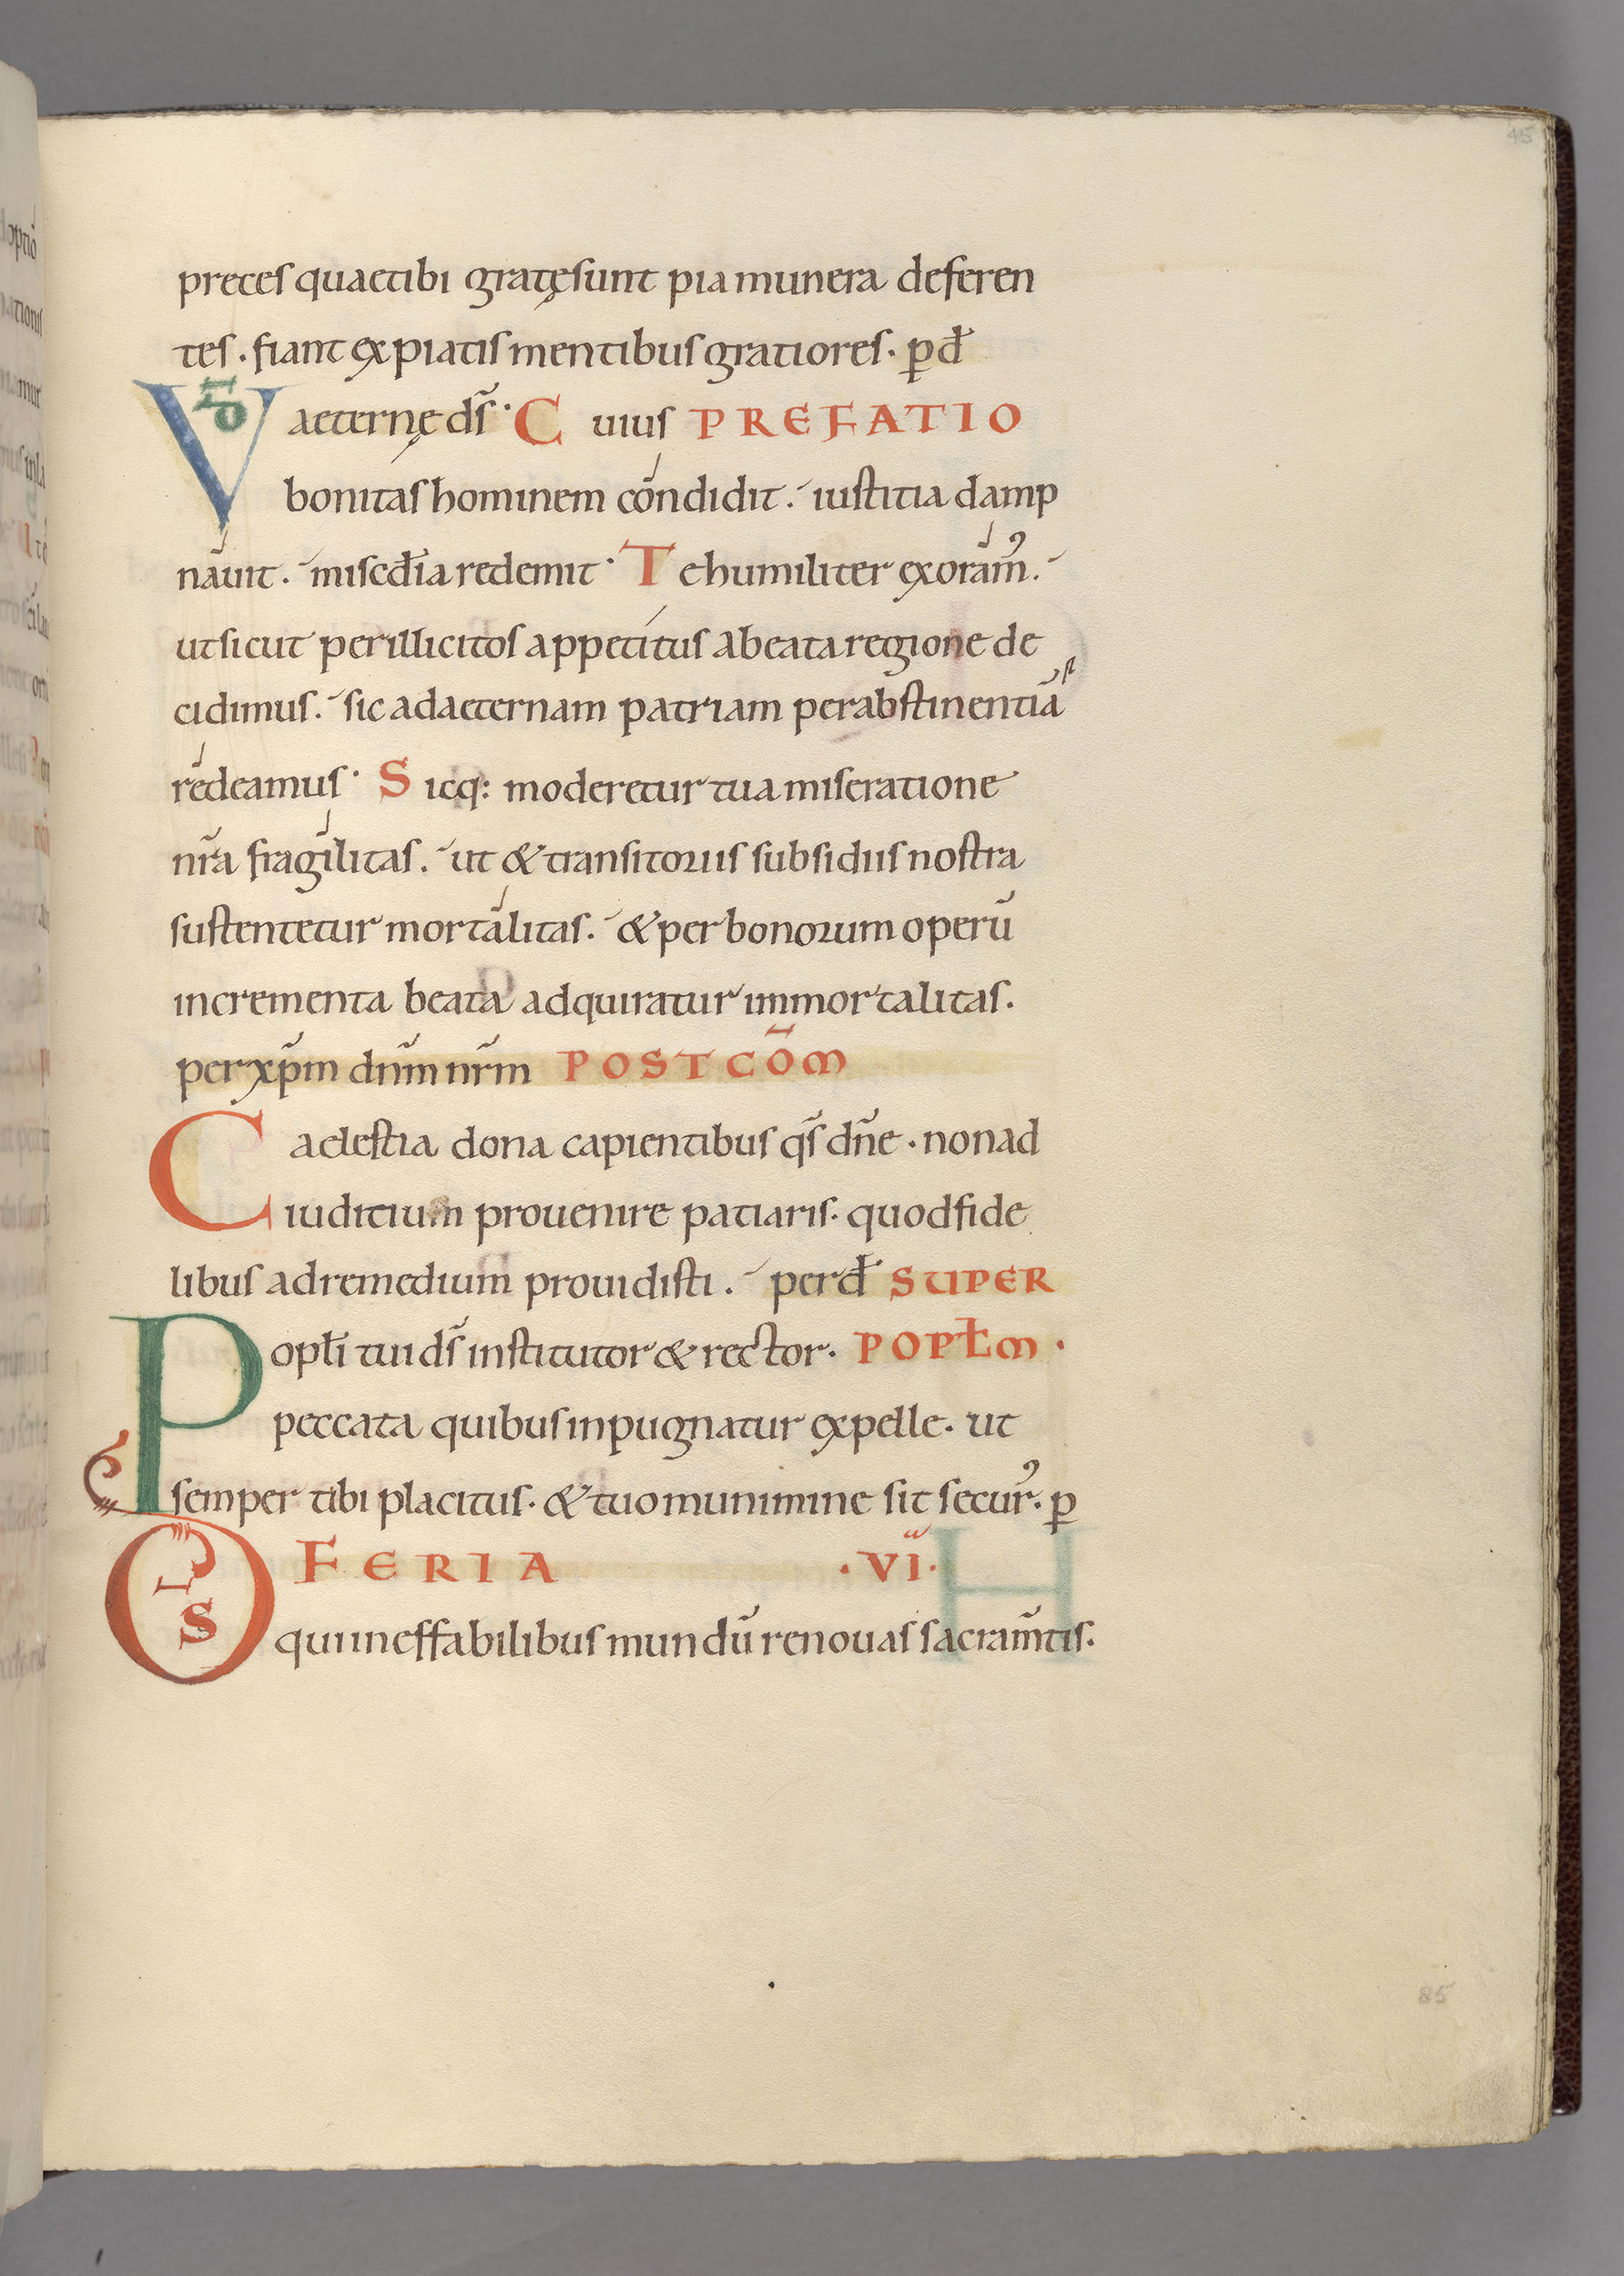 45
preces quae tibi gratę sunt pia munera deferen
tes . fiant expiatis mentibus gratiores . p d̄
VD aeternę ds̄ . Cuius PREFATIO
bonitas hominem condidit . iustitia damp
nauit . misc̄dia redemit . Te humiliter exoram᾽ .
ut sicut per illicitos appetitus a beata regione de
cidimus . sic ad aeternam patriam per abstinentiā
redeamus . Sicq: moderetur tua miseratione
nr̄a fragilitas . ut & transitoriis subsidiis nostra
sustentetur mortalitas . & per bonorum operū
incrementa beata adquiratur immortalitas .
per xp̄m dn̄m nr̄m POST COM̄
Caelestia dona capientibus qs̄ dn̄e . non ad
iuditium prouenire patiaris . quod fide
libus ad remedium prouidisti . per d̄ SUPER
Popłi tui ds̄ institutor & rector . POPŁM .
peccata quibus inpugnatur expelle . ut
semper tibi placitus . & tuo munimine sit secur᾽ . p
FERIA . VI .
DS qui ineffabilibus mundū renouas sacram̄tis .
85